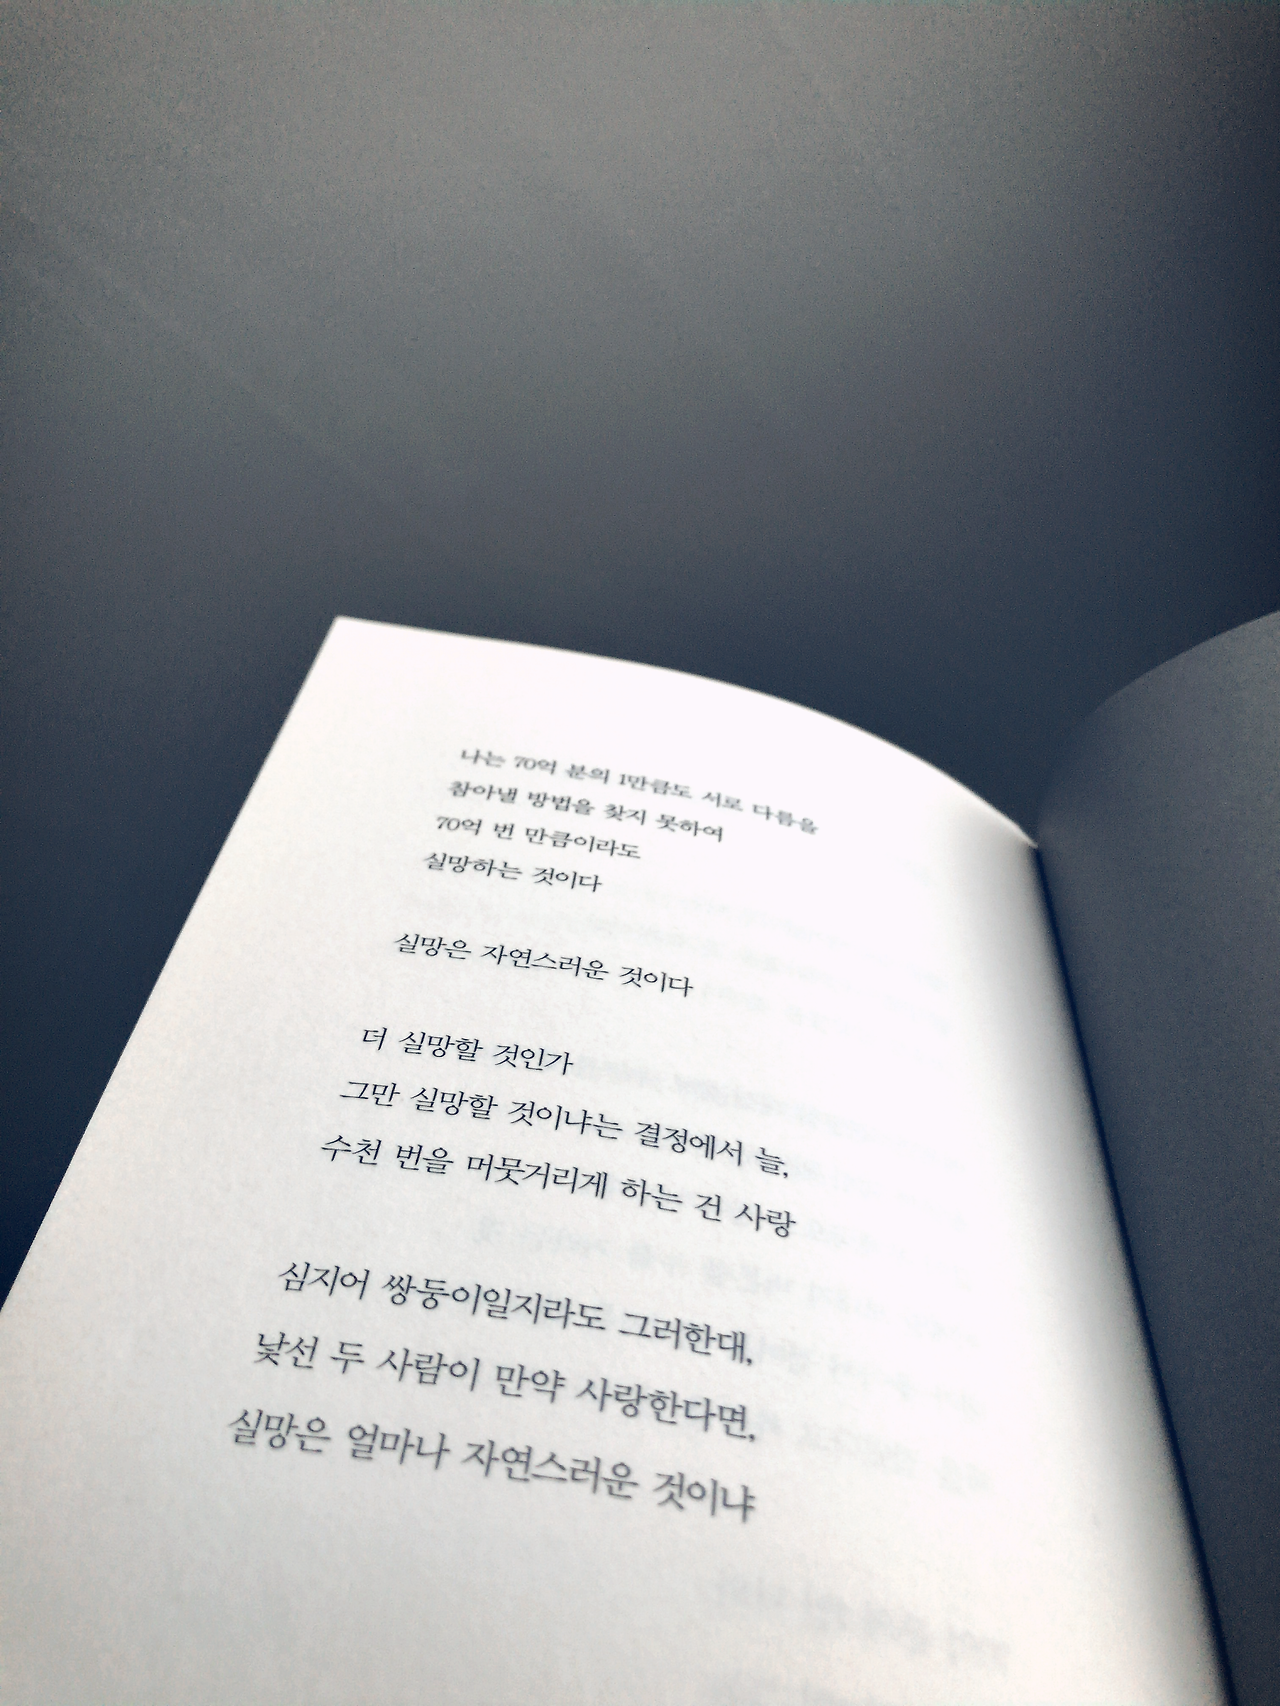 나는 70억 분의 1만큼도 서로 다름을
참아낼 방법을 찾지 못하여
70억 번 만큼이라도
실망하는 것이다
실망은 자연스러운 것이다
더 실망할 것인가
그만 실망할 것이냐는 결정에서 늘,
수천 번을 머뭇거리게 하는 건 사랑
심지어 쌍둥이일지라도 그러한대,
낯선 두 사람이 만약 사랑한다면,
실망은 얼마나 자연스러운 것이냐